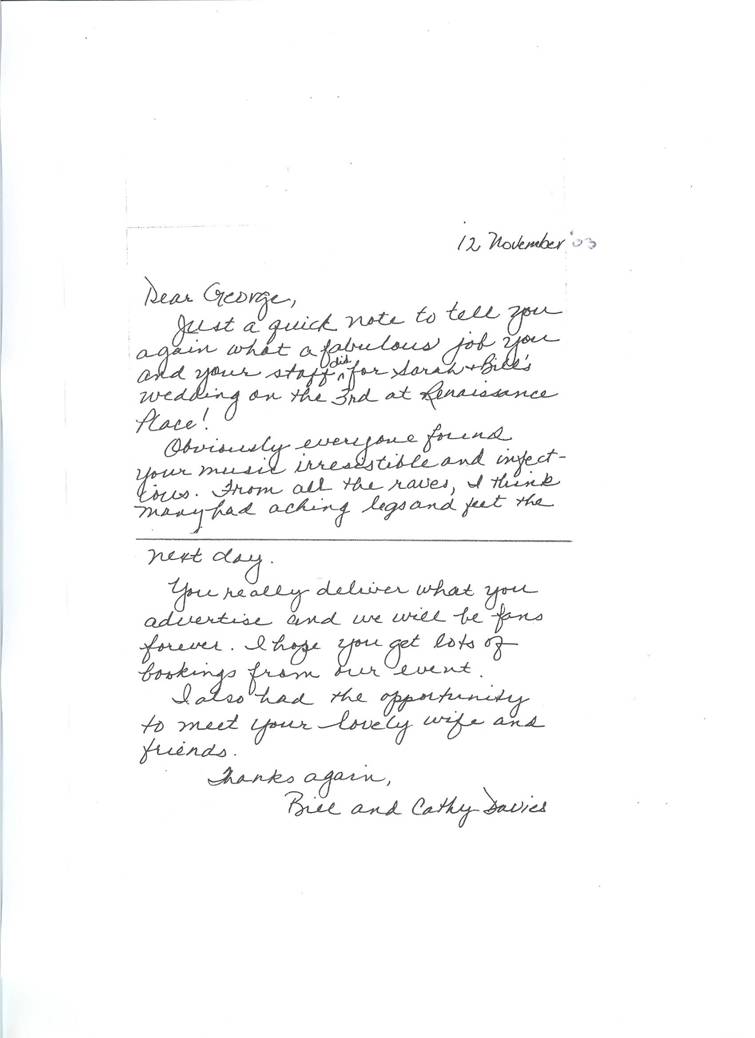 12 November '03
Dear George,
Just a quick note to tell you
again what a fabulous job you
and your staff did for Sarah + Bill's
wedding on the 3rd at Renaissance
Place!
Obviously everyone found
your music irresistible and infect-
ious. From all the raves, I think
many had aching legs and feet the
next day.
You really deliver what you
advertise and we will be fans
forever. I hope you get lots of
bookings from our event.
I also had the opportunity
to meet your lovely wife and
friends.
Thanks again,
Bill and Cathy Davies